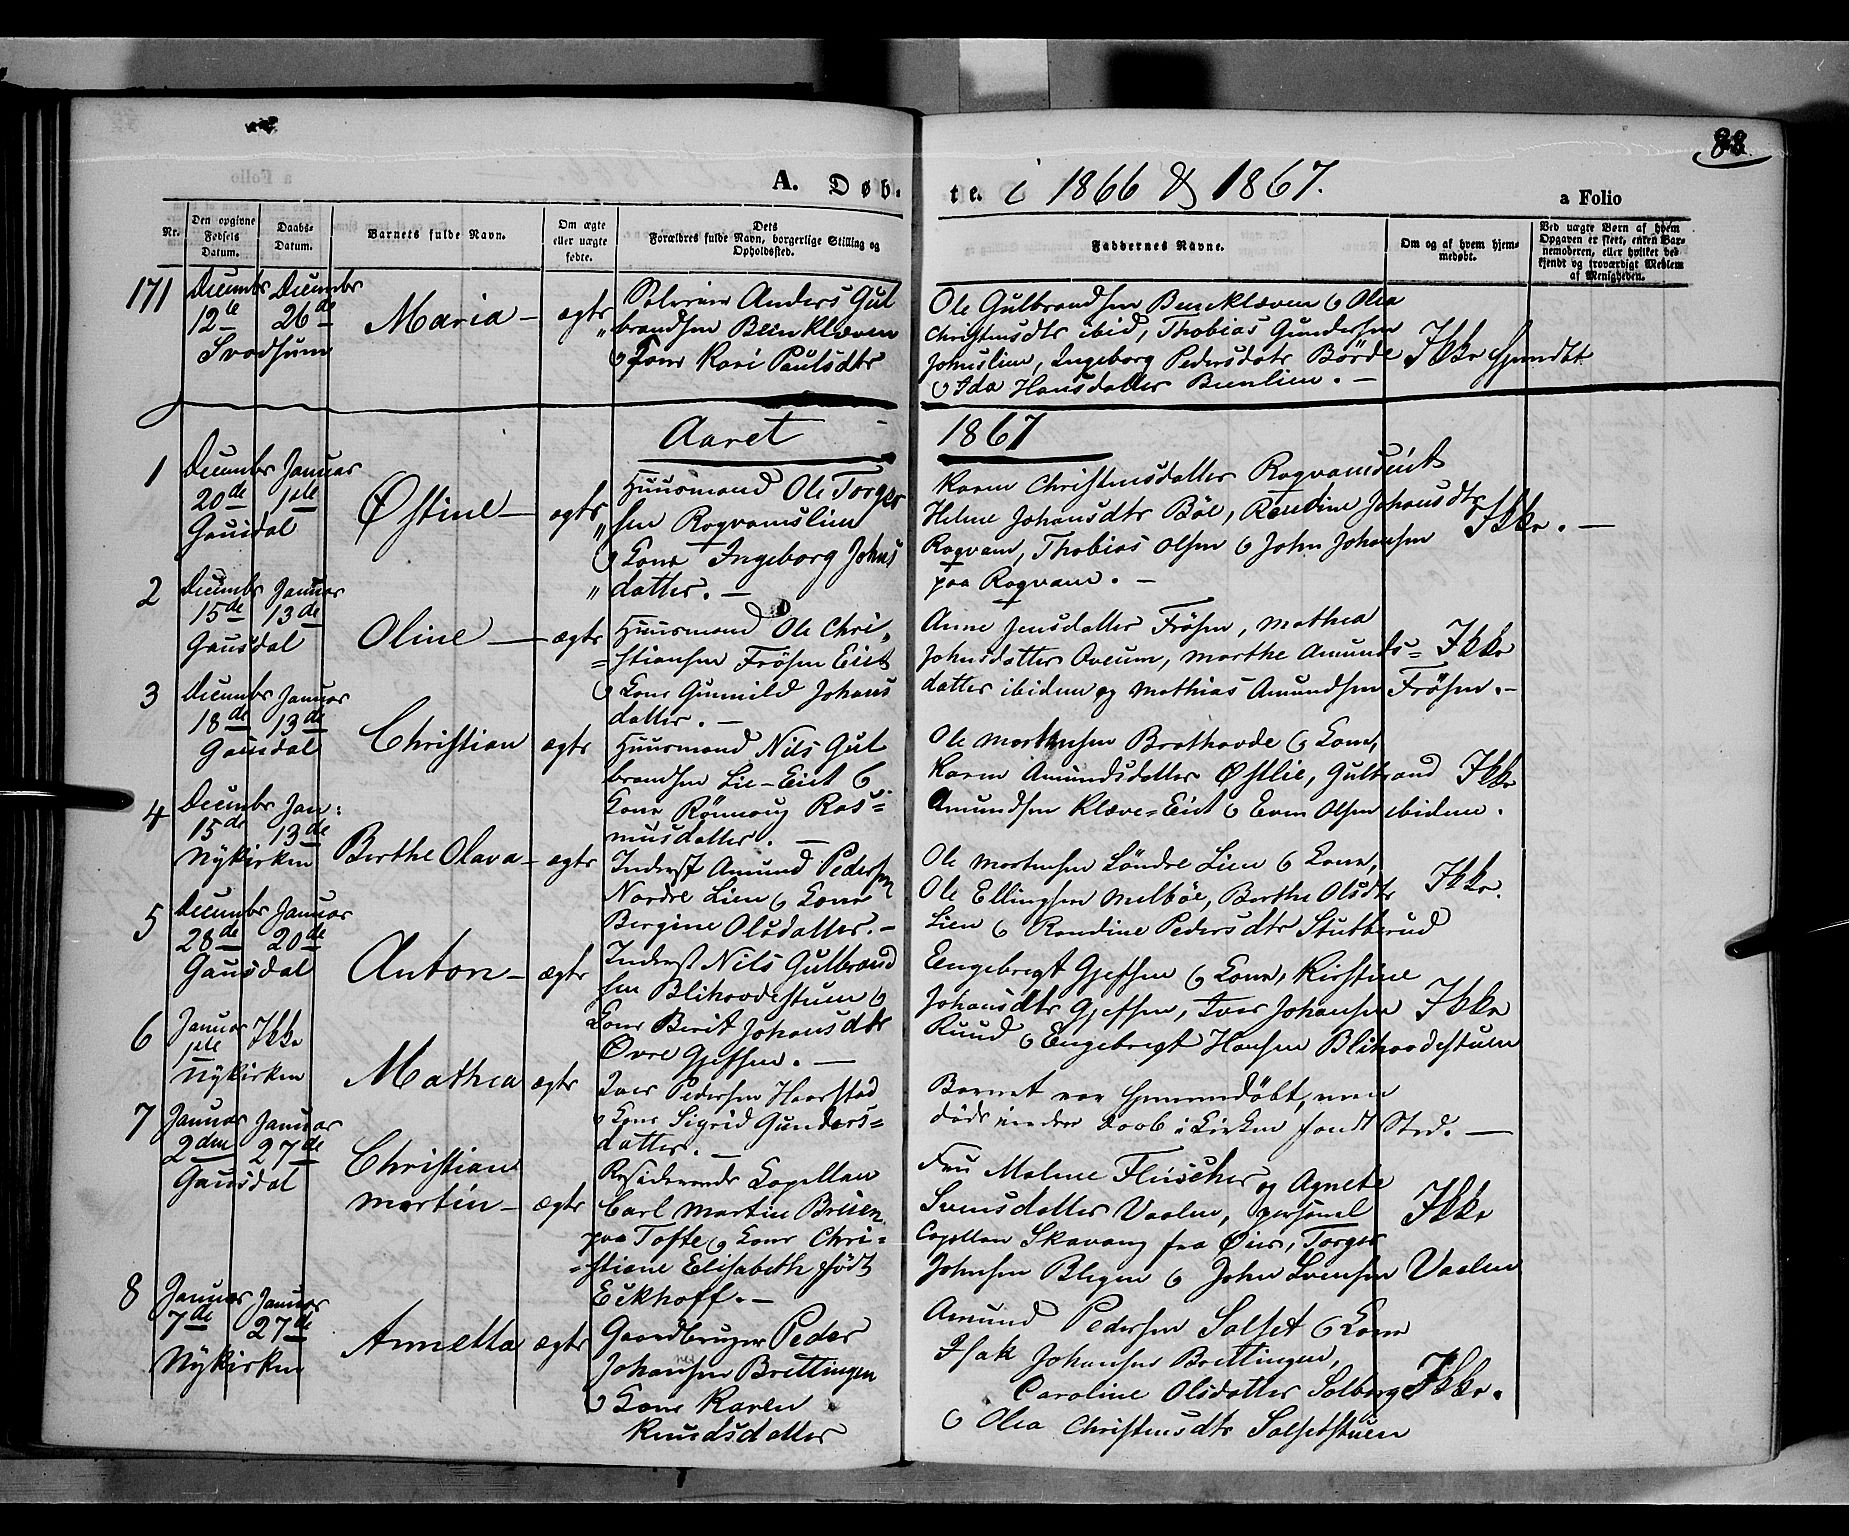 88
A. Døb-
te. i 1866 & 1867.
a Folio
Nr.
Den opgivne
Fødsels
Datum.
Daabs-
Datum.
Barnets fulde Navn.
Om ægte
eller uægte
fødte.
Dets
Forældres fulde Navn, borgerlige Stilling og
Opholdssted.
Faddernes Navne.
Om og af hvem hjem-
medøbt.
Ved uægte Børn af hvem
Opgaven er skeet, enten Bar-
nemoderen, eller hvilket be-
kjendt og troværdigt Medlem
af Menigheden.
171
Decembr
12te
Svadsum
Decembr
26de
Maria
ægte
Anders Gul
brandsen
Kone Kari Paulsdtr
Ole Gulbrandsen & Olea
Christensdtr ibid, Thobias Gundersen
Johnslien, Ingeborg Pedersdatr Börde
& Ida Hansdatter
Ikke
Aaret
1867
1
Decembr
20de
Gausdal
Januar
1ste
Østine
ægte
Huusmand Ole Torger
sen Rogvamslien
& Kone Ingeborg Johns
datter.
Karen Christensdatter Rogvamseiet
Helene Johansdtr Böe, Rendine Johansdtr
Rogvam, Thobias Olsen & John Johansen
paa Rogvam.
Ikke.
2
Decembr
15de
Gausdal
Januar
13de
Oline
ægte
Huusmand Ole Chri-
stiansen Frösen Eiet
& Kone Gunnild Johans
datter.
Anne Jensdatter Frösen, Mathea
Johnsdatter Oveum, Marthe Amunds=
datter ibidem og Mathias Amundsen Frösen.
Ikke
3
Decembr
18de
Gausdal
Januar
13de
Christian
ægte
Huusmand Nils Gul
brandsen Lie-Eiet &
Kone Rönnoug Ras=
musdatter.
Ole Mortensen Brathovde & Kone,
Karen Amundsdatter Østlie, Gulbrand
Amundsen Klæve=Eiet & Even Olsen ibidem.
Ikke
4
Decembr
15de
Nykirken
Jan:
13de
Berthe Olava
ægte
Inderst Amund Pedersen
Nordre Lien & Kone
Bergine Olsdatter.
Ole Mortensen Söndre Lien & Kone,
Ole Ellingsen Melböe, Berthe Olsdtr
Lien & Randine Pedersdtr Stutberud
Ikke.
5
Decembr
28de
Gausdal
Januar
20de
Anton
ægte
Inderst Nils Gulbrand
sen Blihovdestuen &
Kone Berit Johansdtr
Øvre Gjefsen.
Engebregt Gjefsen & Kone, Kirstine
Johansdtr Gjefsen, Iver Johansen
Ruud & Engebregt Hansen Blihovdestuen
Ikke
6
Januar
1ste
Nykirken
Ikke
Mathea
ægte
Iver Pedersen Haarstad
& Kone Sigrid Gunders=
datter.
Barnet var hjemmedöbt, men
döde inden Daab i Kirken fandt Sted.
7
Januar
2den
Gausdal
Januar
27de
Christian
Martin
ægte
Residerende Capellan
Carl Martin Brüen
paa Tofte & Kone Chri=
=stiane Elisabeth född
Eckhoff.
Fru Malene Fleischer og Agnete
Svensdatter Vaalen, personel
Capellan Skavang fra Øier, Torger
Johnsen Blegen & John Svensen Vaalen
Ikke
8
Januar
7de
Nykirken
Januar
27de
Annetta
ægte
Gaardbruger Peder
Johansen Brettingen
& Kone Karen
Knudsdatter
Amund Pedersen Solset & Kone
Isak Johansen Brettingen,
Caroline Olsdatter Solberg
& Olea Christensdtr Solsetstuen
Ikke.